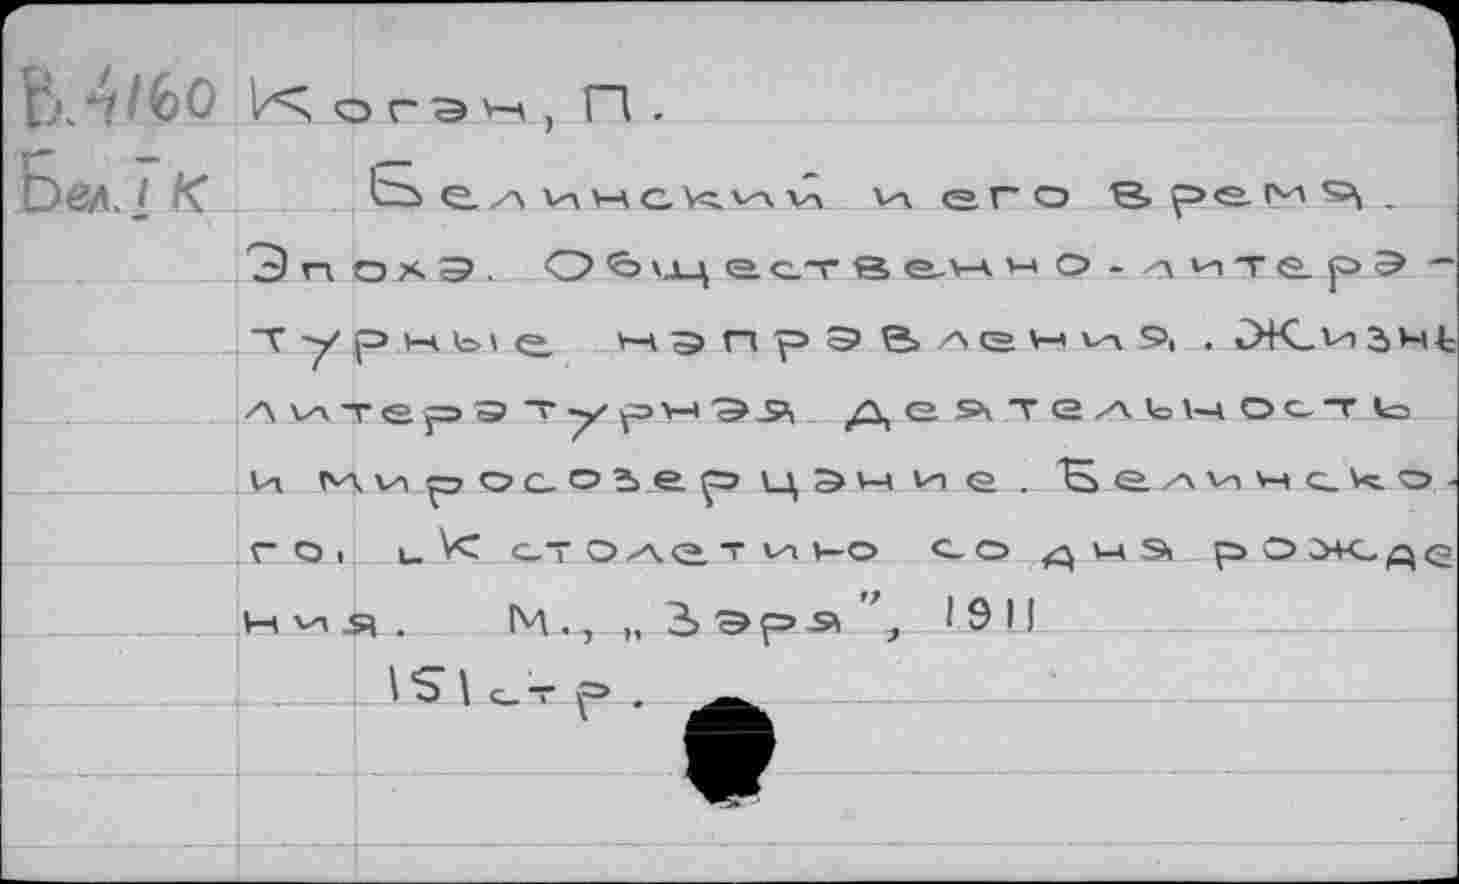 В.4/60 Коган, П.
Бел.1 К Белинский и его время.
Эпоха. Общественно-литера-
турные направления. Жизнь
литературная деятельность
и миросозерцание. Белинско-
го, к столетию со дня рожде
ния. М., „Заря", 1911
151 стр.